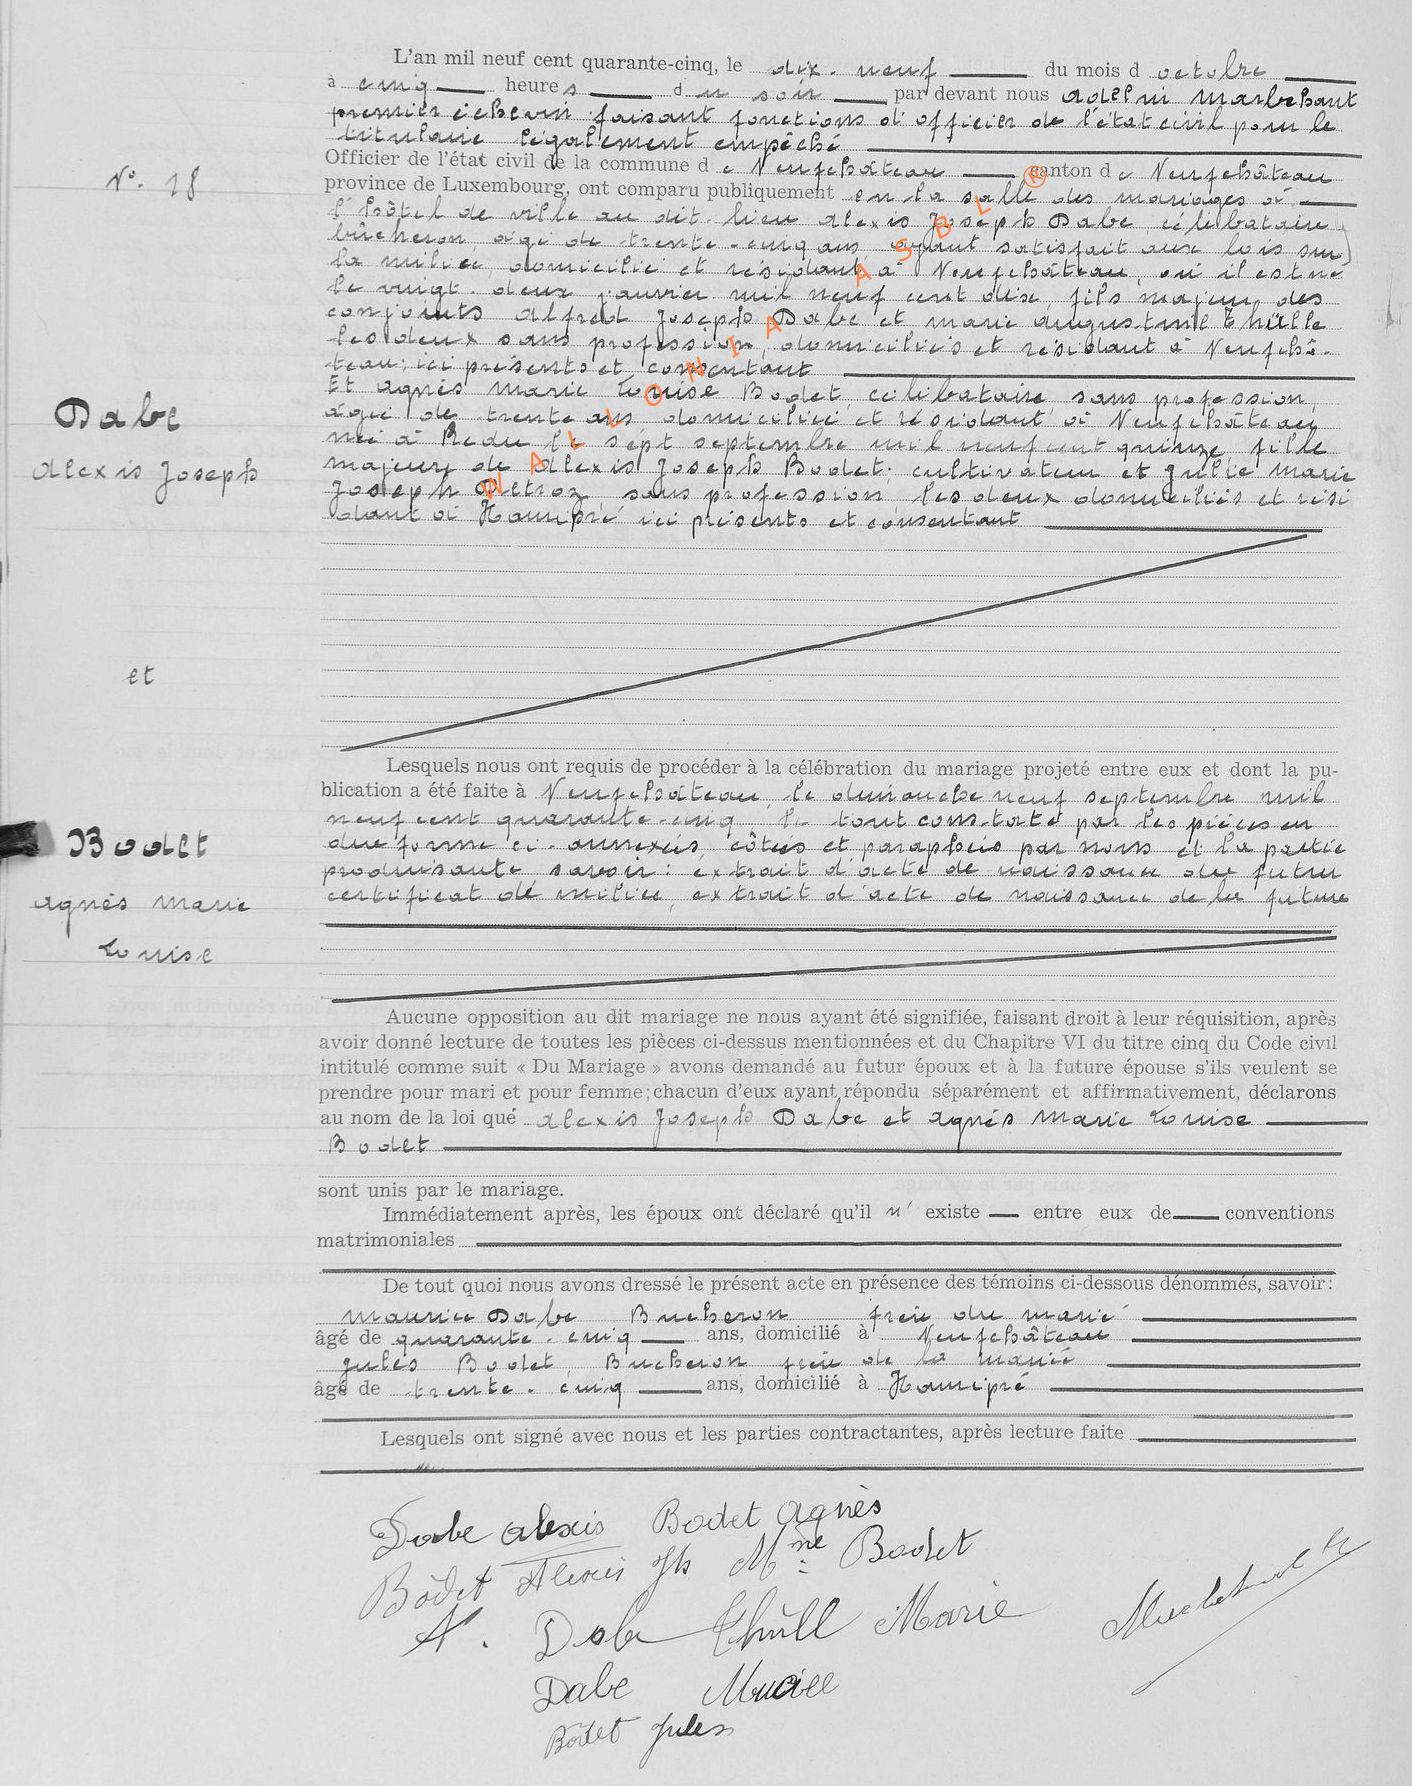 L'an mil neuf cent quarante-cinq, le dix-neuf du mois d octobre
à cinq heures du soir par devant nous Adelin Marbehant
premier échevin faisant fonctions d'officier de l'état civil pour le
titulaire légalement empêché
Officier de l'état civil de la commune de Neufchâteau canton de Neufchâteau
N°. 18
province de Luxembourg, ont comparu publiquement en la salle des mariages à
l'hôtel de ville au dit lieu Alexis Joseph Dabe, célibataire
bûcheron, âgé de trente-cinq ans ayant satisfait aux lois sur
la milice, domicilié et résidant à Neufchâteau, où il est né
le vingt-deux janvier mil neuf cent dix, fils majeur des
conjoints Alfred Joseph Dabe et Marie Augustine Thülle
les deux sans profession, domiciliés et résidant à Neufchâ-
teau; ici présents et consentant
Et Agnès Marie Louise Bodet, célibataire sans profession,
âgée de trente ans, domiciliée et résidant à Neufchâteau
née à Redu le sept septembre mil neuf cent quinze, fille
majeure de Alexis Joseph Bodet; cultivateur et Julie Marie
Joseph Detroz sans profession, les deux domiciliés et rési
dant à Hamipré ici présents et consentant
Dabe
Alexis Joseph
et
Bodet
Agnès Marie
Louise
WALLONIA ASBL ®
Lesquels nous ont requis de procéder à la célébration du mariage projeté entre eux et dont la pu-
blication a été faite à Neufchâteau, le dimanche neuf septembre mil
neuf cent quarante-cinq, le tout constaté par les pièces en
due forme ci-annexées, côtées et paraphées par nous et la partie
produisante savoir: extrait d'acte de naissance du futur
certificat de milice, extrait d'acte de naissance de la future
Aucune opposition au dit mariage ne nous ayant été signifiée, faisant droit à leur réquisition, après
avoir donné lecture de toutes les pièces ci-dessus mentionnées et du Chapitre VI du titre cinq du Code civil
intitulé comme suit « Du Mariage » avons demandé au futur époux et à la future épouse s'ils veulent se
prendre pour mari et pour femme; chacun d'eux ayant répondu séparément et affirmativement, déclarons
au nom de la loi qué Alexis Joseph Dabe et Agnès Marie Louise
Bodet
sont unis par le mariage.
Immédiatement après, les époux ont déclaré qu'il n' existe entre eux de conventions
matrimoniales
De tout quoi nous avons dressé le présent acte en présence des témoins ci-dessous dénommés, savoir:
Maurice Dabe Bucheron frère du marié
âgé de quarante-cinq ans, domicilié à Neufchâteau
Jules Bodet, Bucheron frère de la mariée
âgé de trente-cinq ans, domicilié à Hamipré
Lesquels ont signé avec nous et les parties contractantes, après lecture faite
Dabe Alexis Bodet Agnès
Bôdet Alexis Jh Mme Bodet
A. Dabe Thüll Marie
Dabe
Bôdet Jules